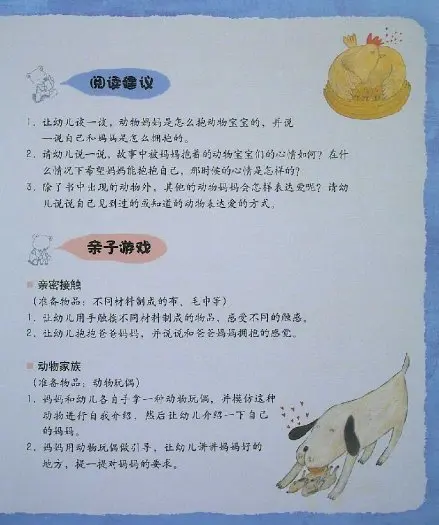 阅读建议
1. 让幼儿谈一谈，动物妈妈是怎么抱动物宝宝的，并说
一说自己和妈妈是怎么拥抱的。
2. 请幼儿说一说，故事中被妈妈抱着的动物宝宝们的心情如何？在什
么情况下希望妈妈能抱抱自己，那时候的心情是怎样的？
3. 除了书中出现的动物外，其他的动物妈妈会怎样表达爱呢？请幼
儿说说自己见到过的或知道的动物表达爱的方式。
亲子游戏
亲密接触
（准备物品：不同材料制成的布、毛巾等）
1. 让幼儿用手触摸不同材料制成的物品，感受不同的触感。
2. 让幼儿抱抱爸爸妈妈，并说说和爸爸妈妈拥抱的感觉。
动物家族
（准备物品：动物玩偶）
1. 妈妈和幼儿各自手拿一种动物玩偶，并模仿这种
动物进行自我介绍，然后让幼儿介绍一下自己
的妈妈。
2. 妈妈用动物玩偶做引导，让幼儿讲讲妈妈好的
地方，提一提对妈妈的要求。